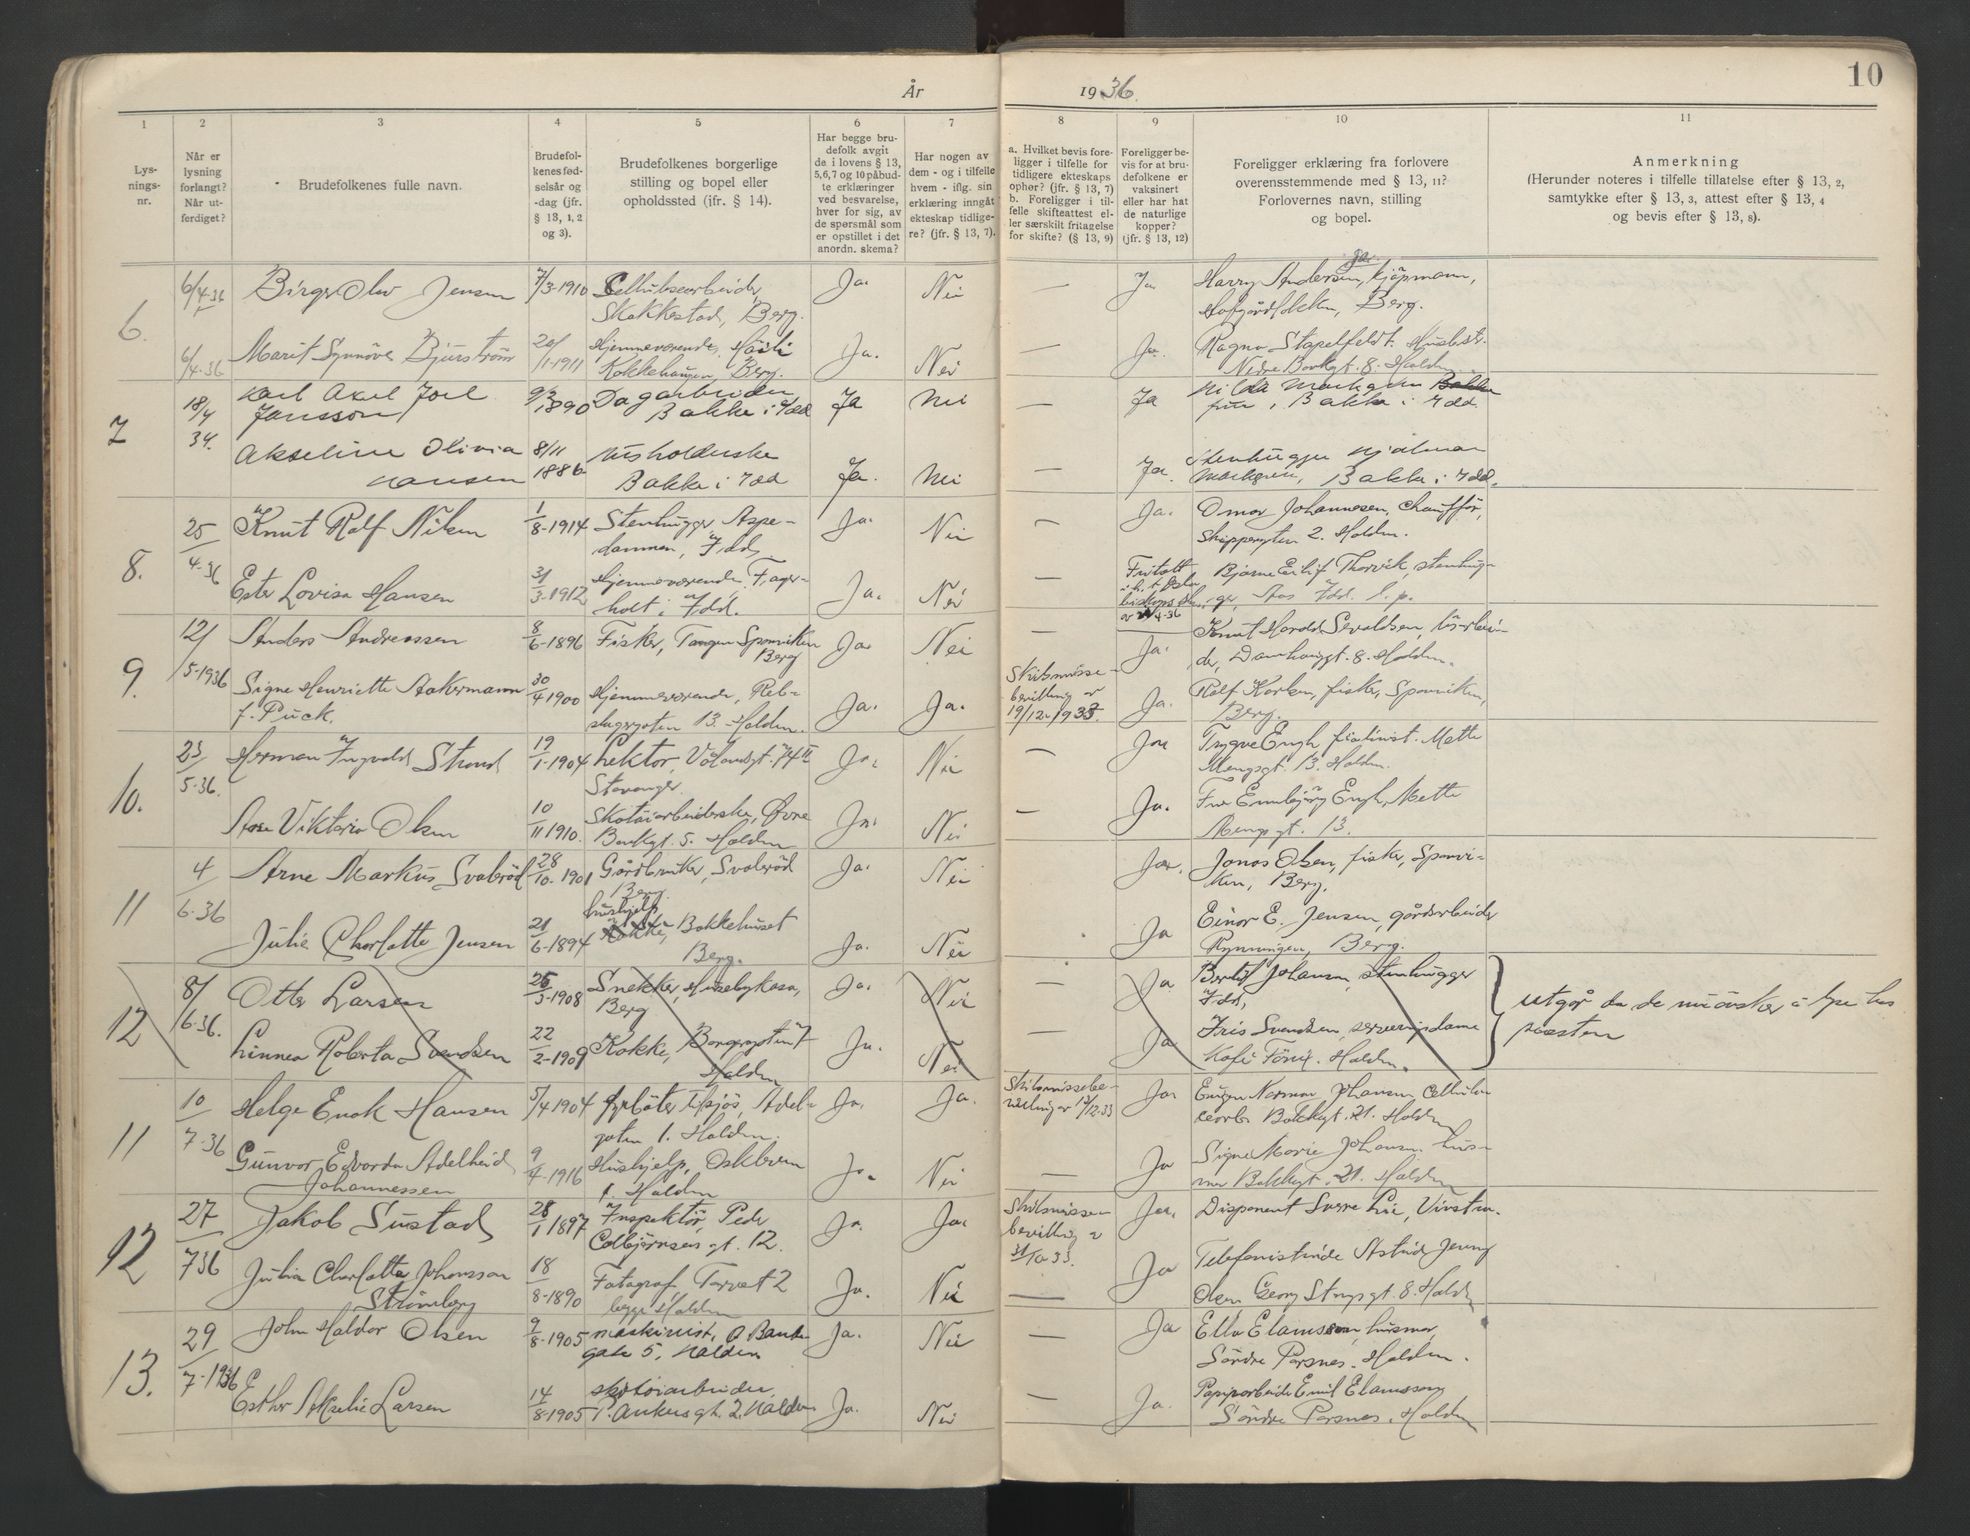 År 1936. 10
1 2 3 4 5 6 7 8 9 10 11
Lys-
nings-
nr.
Når er
lysning
forlangt?
Når ut-
ferdiget?
Brudefolkenes fulle navn.
Brudefol-
kenes fød-
selsår og
-dag (jfr.
§ 13, 1, 2
og 3).
Brudefolkenes borgerlige
stilling og bopel eller
opholdssted (ifr. § 14).
Har begge bru-
defolk avgit
de i lovens § 13,
5,6,7 og 10 påbud-
te erklæringer
ved besvarelse,
hver for sig, av
de spørsmål som
er opstillet i det
anordn. skema?
Har nogen av
dem - og i tilfelle
hvem - iflg. sin
erklæring inngåt
ekteskap tidlige-
re? (jfr. § 13, 7).
a. Hvilket bevis fore-
ligger i tilfelle for
tidligere ekteskaps
ophør? (jfr. § 13, 7)
b. Foreligger i til-
felle skifteattest el-
ler særskilt fritagelse
for skifte? (§ 13, 9)
Foreligger be-
vis for at bru-
defolkene er
vaksinert
eller har hat
de naturlige
kopper?
(jfr. § 13, 12)
Foreligger erklæring fra forlovere
overensstemmende med § 13, 11?
Forlovernes navn, stilling
og bopel.
Anmerkning
(Herunder noteres i tilfelle tillatelse efter § 13, 2,
samtykke efter § 13, 3, attest efter § 13, 4
og bevis efter § 13, 8).
6. 6/4-36 Birger Olav Jensen 7/3-1910 Cellulosearbeider, Ja. Nei — Ja Harry Andersen, kjøpmann,
Skakkestad, Berg. Berg.
6/4-36 Marit Synnöve Bjurström 20/1-1911 Hjemmeværende, Ja. Nei — Ja. Ragna Stapelfeldt. Husbest.
Kokkehaugen, Berg. Nedre Bankgt. 8. Halden.
7 18/4 34. Karl Axel Joel 9/3 1890 Dagarbeider Ja Nei — Ja Hilda Markgren
Jansson Bakke i Idd frue, Bakke i Idd.
Akseline Olivia 8/11 1886 Husholderske Ja. Nei — Ja. Stenhugger Hjalmar
Hansen Bakke i Idd Markgren, Bakke i Idd.
8. 25/4-36 Knut Rolf Nilsen 1/8-1914 Stenhugger Aspe- Ja. Nei — Ja. Omar Johannesen, Chauffør,
dammen, Idd, Skippergten 2. Halden.
Ester Lovisa Hansen 31/3-1912 Hjemmeværende, Fager- Ja. Nei — Fritatt Bjarne Eilif Thorvik, stenhug-
holt i Idd. ger, Aas Idd. l.p.
9. 12/5-1936 Anders Andreassen 8/6-1896 Fisker, Tangen Sponviken Ja. Nei — Ja. Knut Sevaldsen,
Berg Damhaugt. 8. Halden.
Signe Henriette Aakermann 30/4 1900 Hjemmeværende, Reb- Ja. Ja. Skilsmisse- Ja. Rolf Karlsen, fisker, Sponviken,
f. Puck. slagergaten 13. Halden. bevilling av Berg.
19/12-1933.
10. 23/5-36. Herman Ingvald Strand 19/1-1904 Lektor, Vålandsgt. 74 II Ja. Nei — Ja Trygve Engh, fiolinist. Mette
Stavanger. Mengsgt. 13. Halden.
Aase Viktoria Olsen 10/11 1910. Skotøiarbeiderske, Øvre Ja. Nei — Ja. Fru Ennbjørg Engh, Mette
Bankgt. 5. Halden Mengsgt. 13.
11 4/6-36 Arne Markus Svaleröd 28/10-1901 Gårdbruker, Svaleröd Ja. Nei Ja. Jonas Olsen, fisker, Sponvi-
Berg. ken, Berg.
hushjelp
Julie Charlotte Jensen 21/6-1894 Kokke, Bakkehuset Ja. Nei Ja Einar E. Jensen, gårdarbeider
Berg. Rynningen, Berg.
12 8/6-36. Otto Larsen 26/3-1908 Snekker, Husebykasa, Ja. Nei — Ja Bertil Johansen, stenhugger
Berg Idd,
utgår da de
presten
Linnea Roberta Svendsen 22/2-1909 Kokke, Borgergaten 7 Ja. Nei — Ja Iris Svendsen, serveringsdame
Halden Kafe Fönix. Halden.
11 10/7-36 Helge Enok Hansen 5/4 1904 Fyrböter tilsjös, Adel- Ja. Ja. Skilsmissebe- Ja Eugen Norman Johansen Cellulose
gaten 1. Halden. villing av 13/12-33 arb. Bakkegt. 21. Halden
Gunvor Edvarda Adelheid 9/4-1916 Hushjelp, Oskleiva Ja. Nei — Ja Signe Marie Johansen, hus-
Johannessen 1. Halden mor Bakkegt. 21. Halden
12 27/7 36 Jakob Sustad 28/1 1897 Inspektör, Peder Ja. Ja. Skilsmisse- Ja. Disponent Sverre Lie,
Colbjörnsens gt. 12. bevilling av
31/10 33.
Julia Charlotta Johansson 18/8-1890 Fotograf Torvet 2 Ja. Nei — Ja Telefonistinde Astrid Jenny
Strömberg begge Halden Olsen Georg Stangs gt. 8. Halden
13. 29/7-1936 John Haldor Olsen 9/8-1905 maskinist, Ø. Bank- Ja. Nei — Ja Ella Elamsson, husmor,
gate 5, Halden Söndre Parsnes. Halden.
Esther Akselie Larsen 14/8-1905 skotøiarbeider, Ja. Nei — Ja. Papirarbeider Emil Elamsson
P. Ankers gt. 2, Halden Söndre Parsnes. Halden